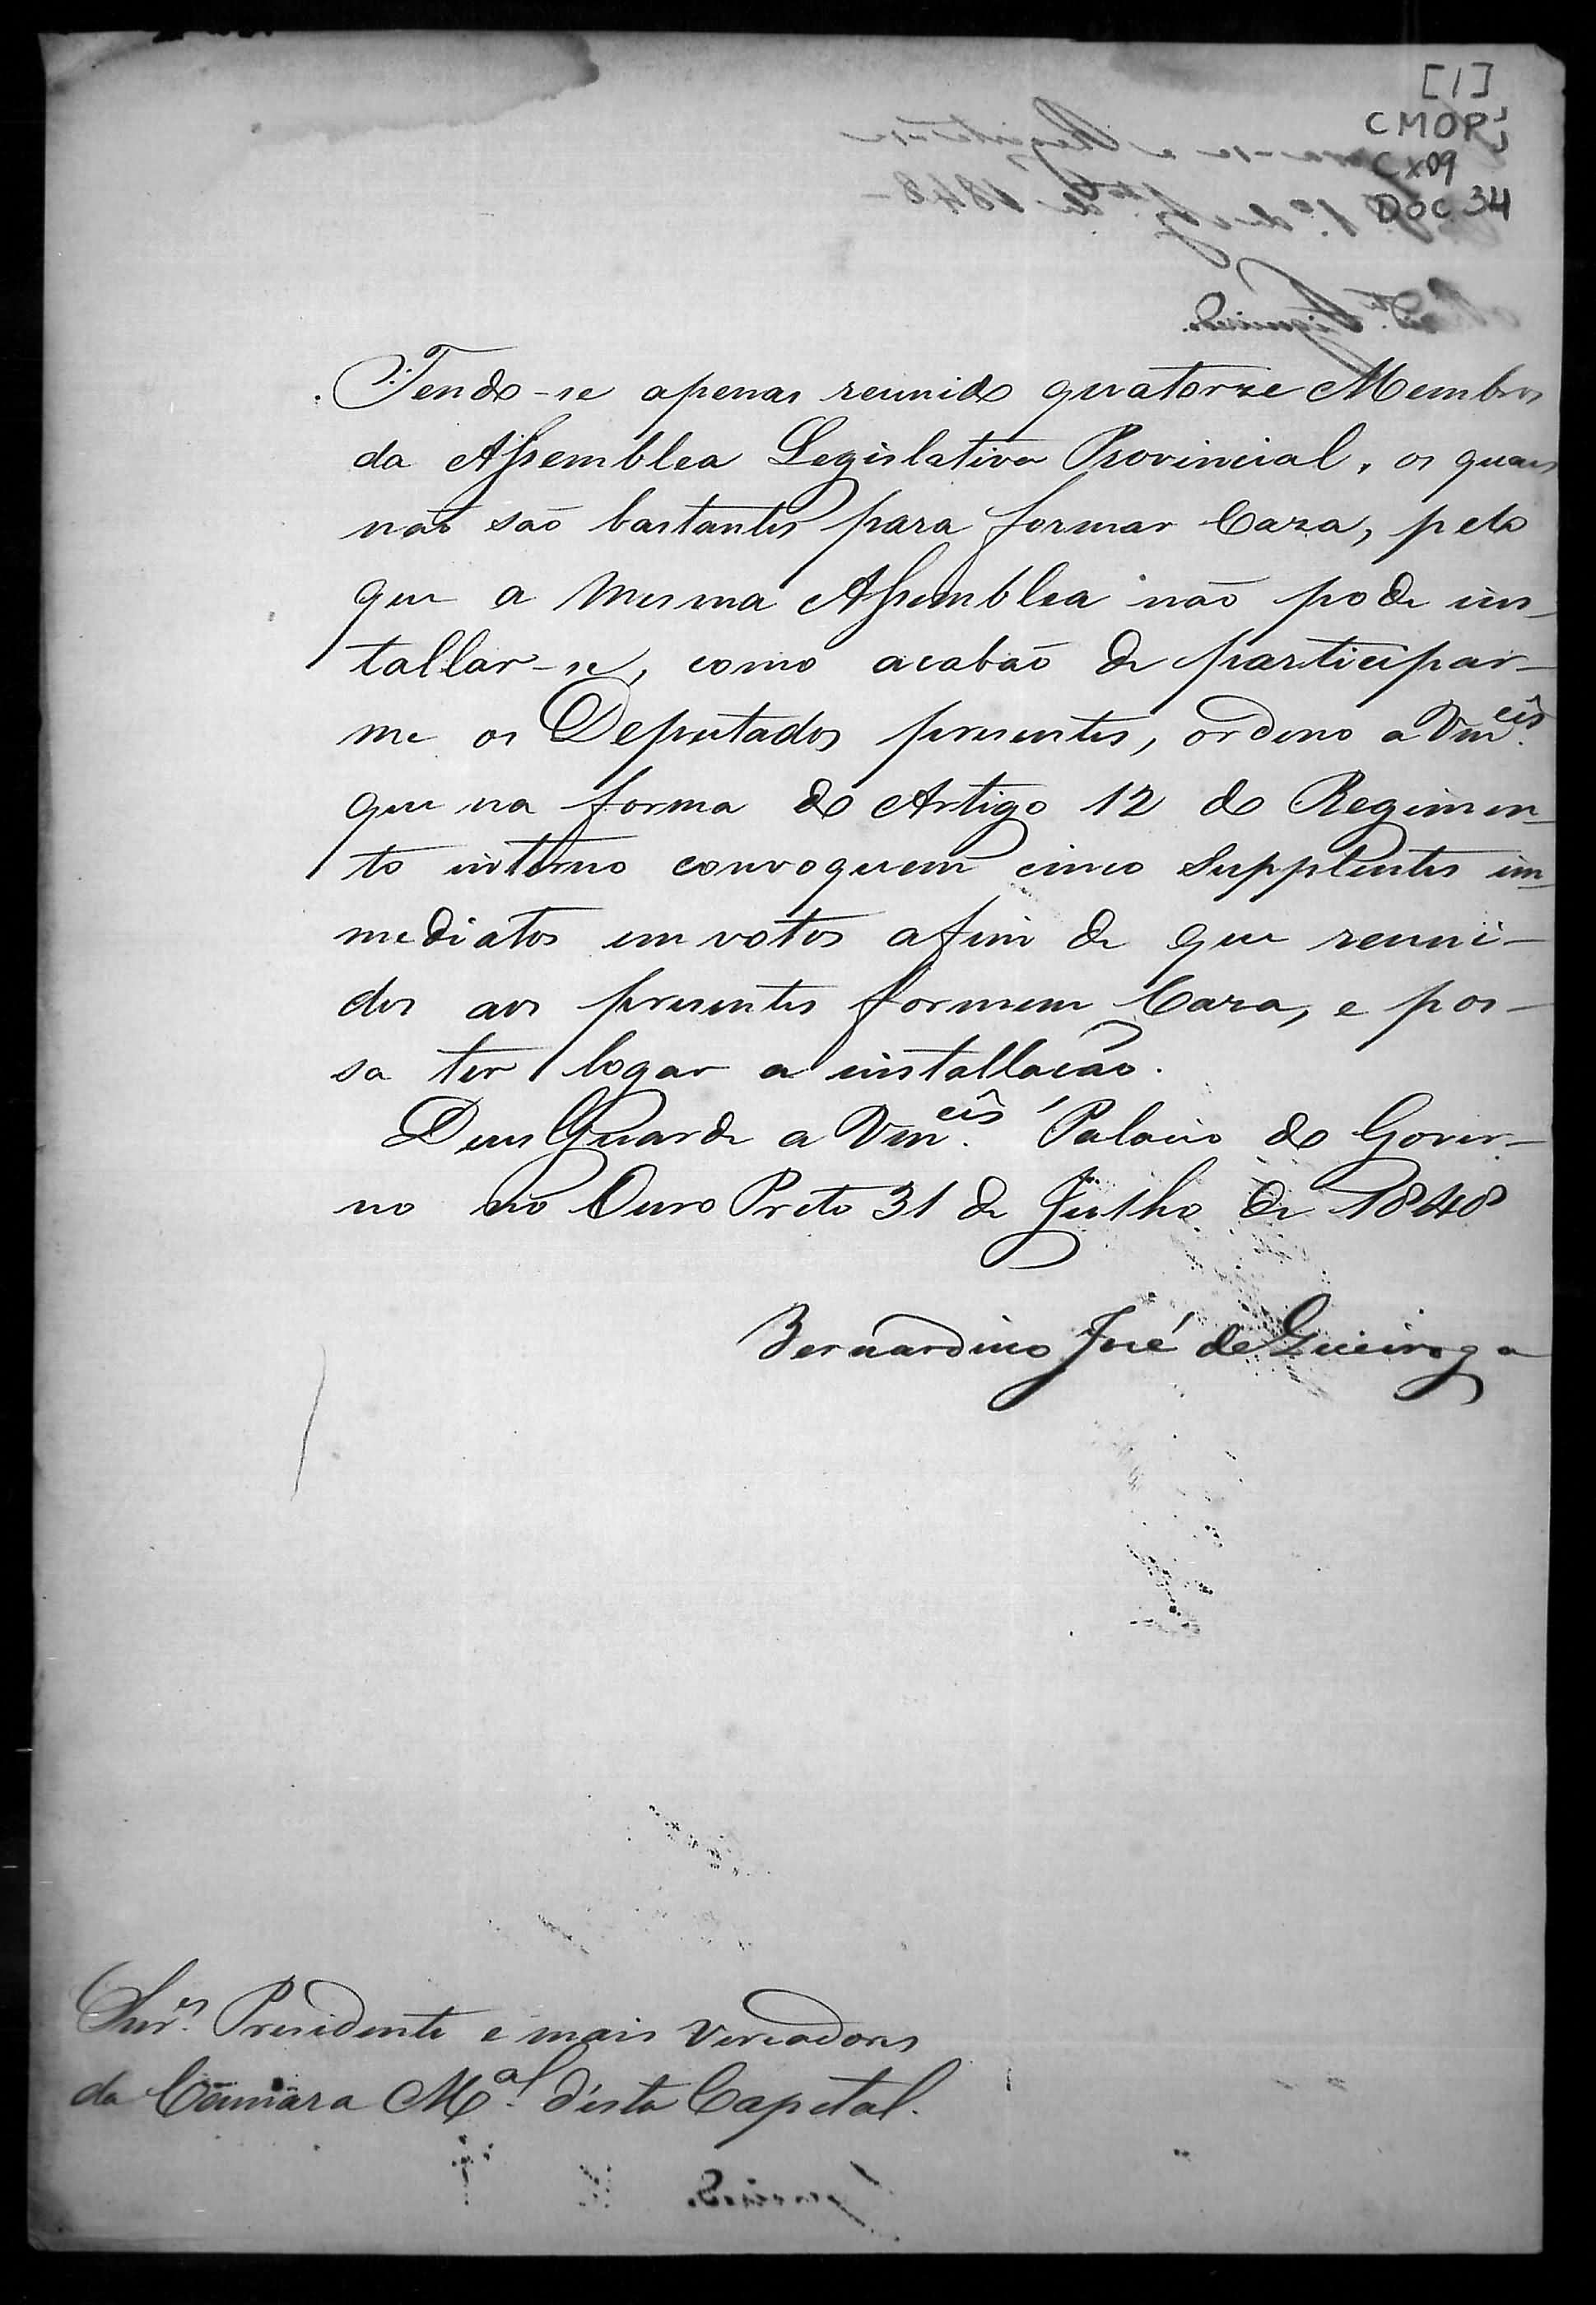 [1]
CMOP
Cx09
DOC 34
Tendo-se apenas reunido quatorze Membros
da Assemblea Legislativa Provincial, os quaes
não são bastantes para formar Caza, pelo
que a mesma Assemblea não pode ins-
tallar-se, como acabão de participar-
me os Deputados presentes, ordeno a Vmcês.
que na forma do Artigo 12 do Regimen-
to interno convoquem cinco Supplentes im-
mediatos em votos afim de que reuni-
dos aos presentes formem Caza, e pos-
sa ter logar a installação.
Deus Guarde a Vmcês. Palacio do Gover-
no no Ouro Preto 31 de Julho de 1848
Bernardino José de Queiroga
Snres. Presidente e mais Vereadores
da Câmara Mal. d'esta Capital.